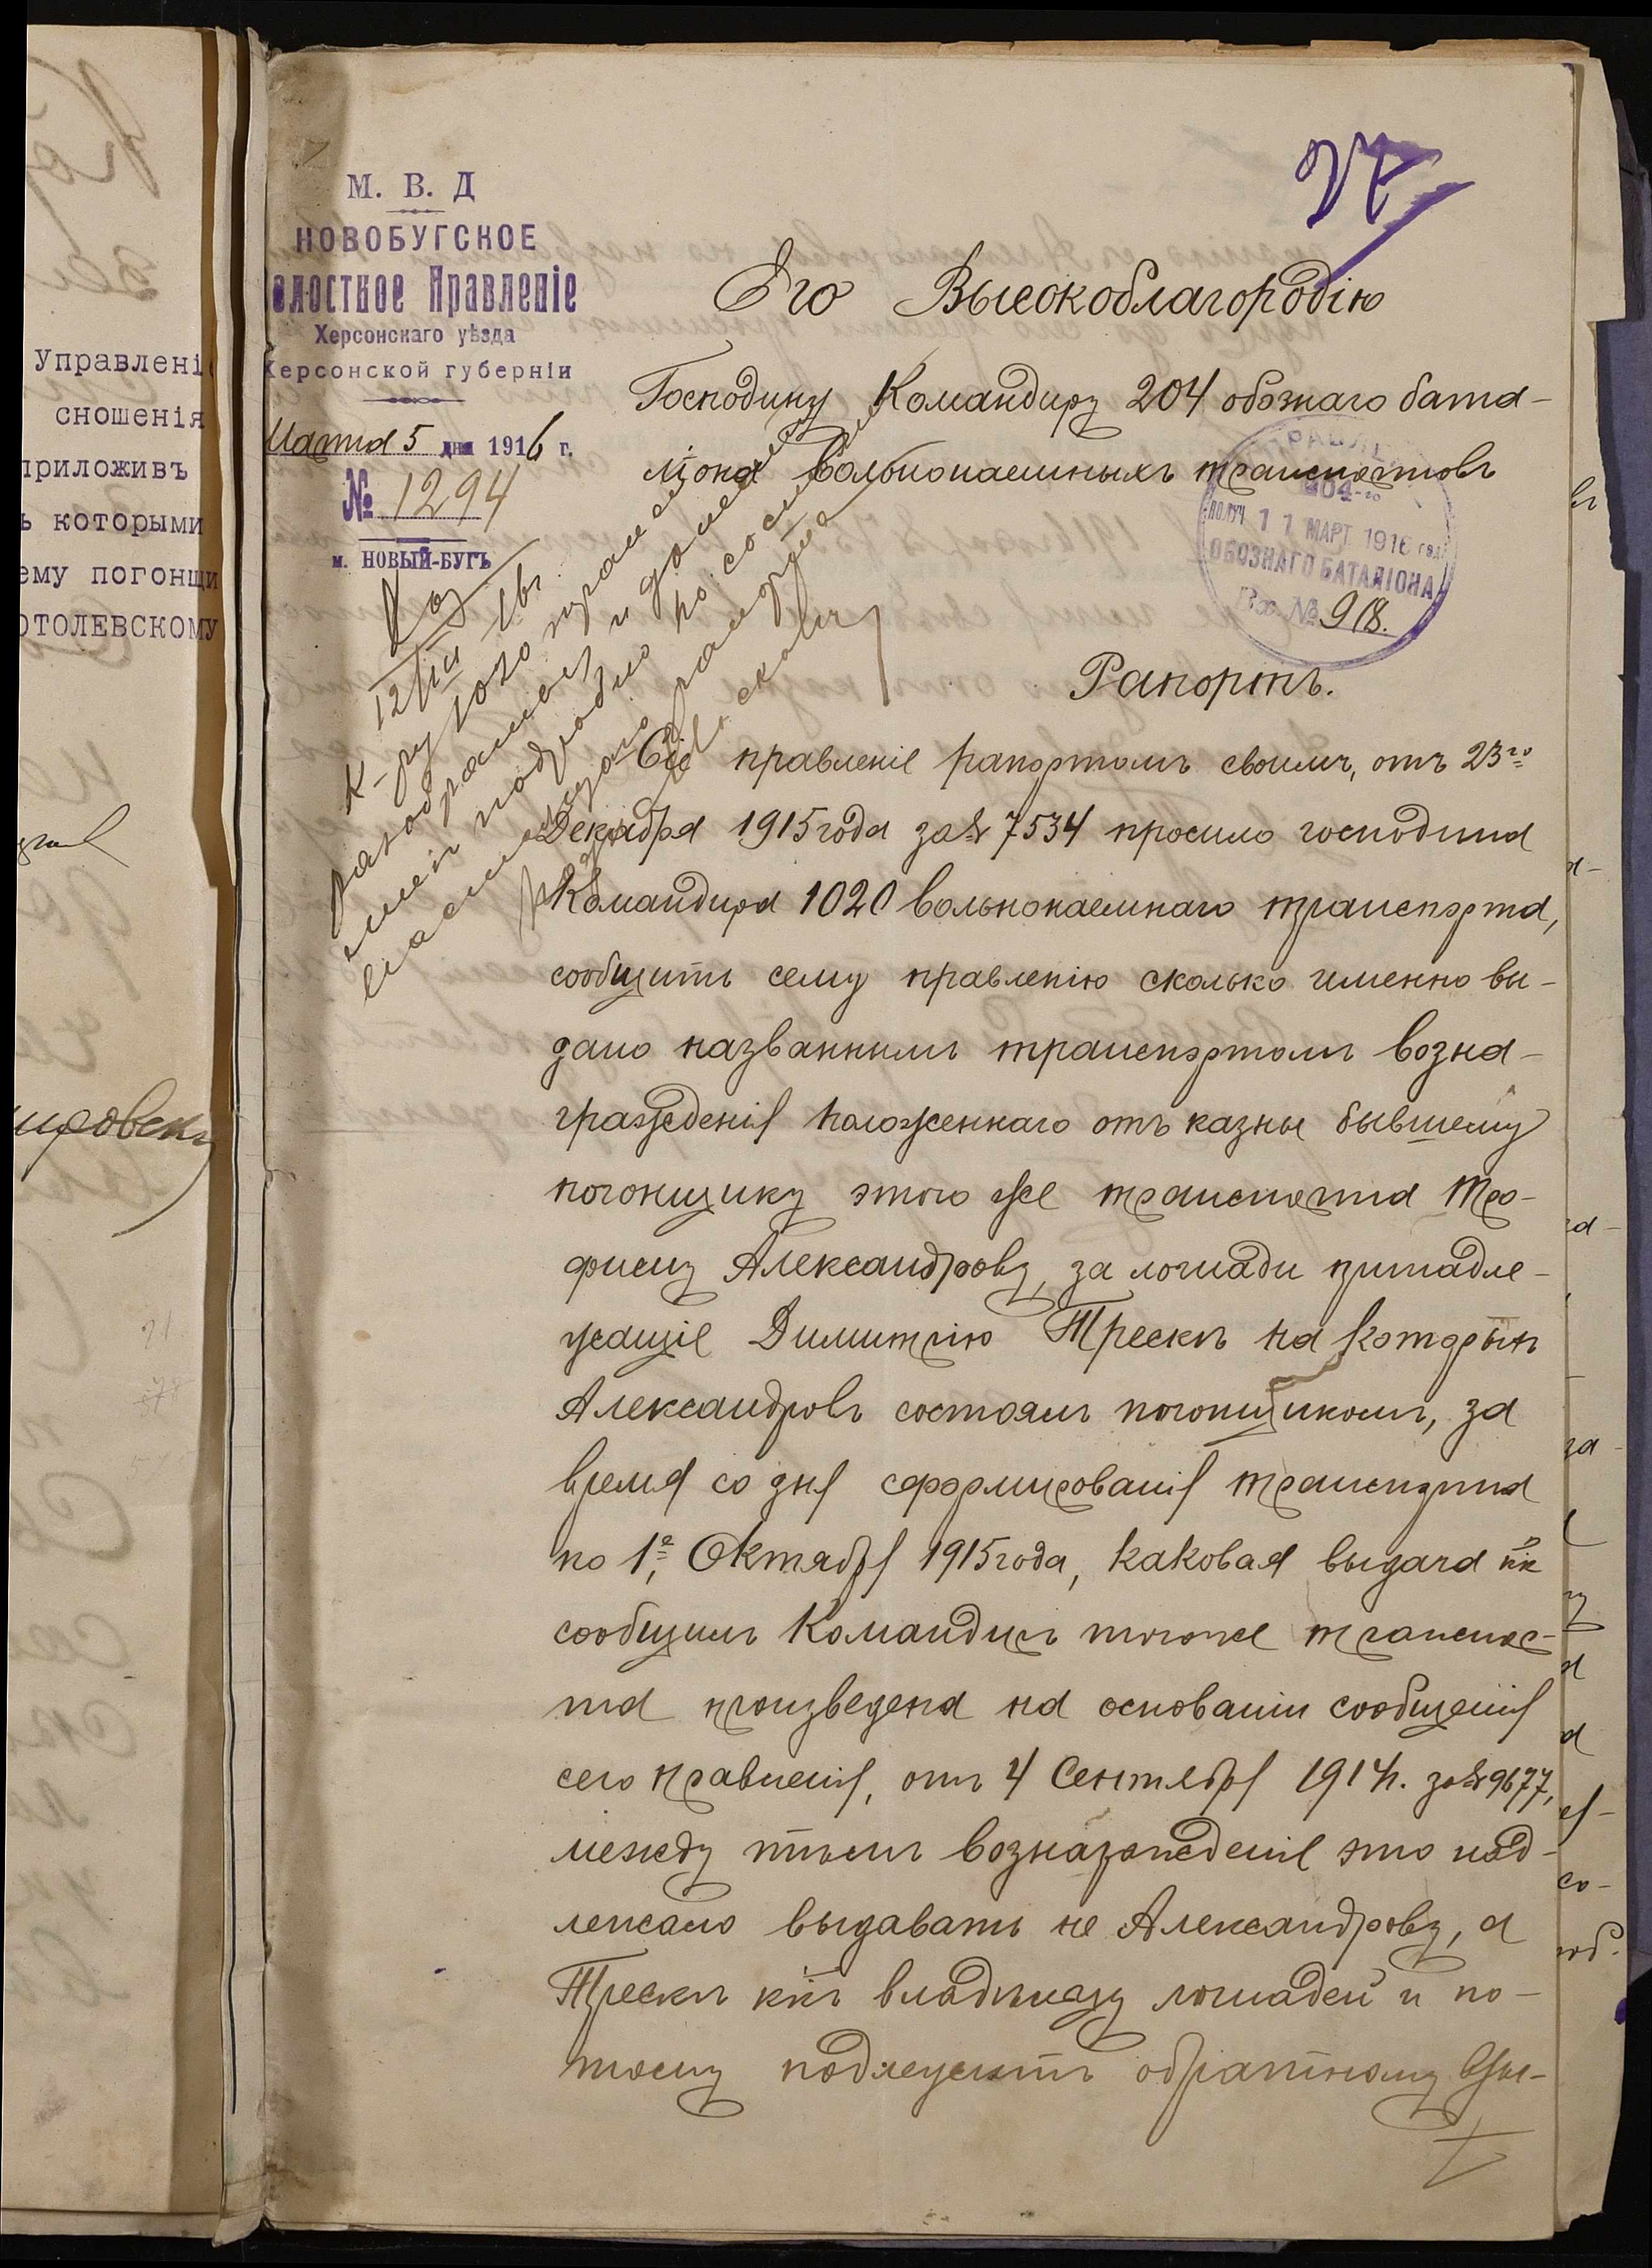 Управлені
сношенія
приложивъ
ъ которыми
ему погонщи
ОТОЛЕВСКОМУ
М. В. Д
НОВОБУГСКОЕ
олостное Правленіе
Херсонскаго уѣзда
Херсонской губерніи
Марта 5 дня 1916 г.
№ 1294
м. НОВЫЙ-БУГЪ
27
Его Высокоблагородію
Господину Командиру 204 обознаго бата-
ліона вольнонаемныхъ транспортовъ
204-го
ПОЛУЧ 11 МАРТ 1916 год
ОБОЗНАГО БАТАЛІОНА
Вх. № 918.
12/III 16 г.
К-ру 1020 транс
Рапортъ.
Сіе правленіе рапортомъ своимъ, отъ 23го
Декабря 1915 года за № 7534 просило господина
Командира 1020 вольнонаемнаго транспорта,
сообщить сему правленію сколько именно вы-
дано названнымъ транспортомъ возна-
гражденія положеннаго отъ казны бывшему
погонщику этого же транспорта Тро-
фиму Александрову, за лошади принадле-
жащіе Димитрію Трескъ на которыхъ
Александровъ состоялъ погонщикомъ, за
время со дня сформированія транспорта
по 1е, Октября 1915 года, каковая выдача кк
сообщилъ Командиръ того же транспор-
та произведена на основаніи сообщенія
сего правленія, отъ 4 Сентября 1914 г. за № 9677,
между тѣмъ вознагражденіе это над-
лежало выдавать не Александрову, а
Трескъ ккъ владѣльцу лошадей и по-
тому подлежитъ обратному взы-